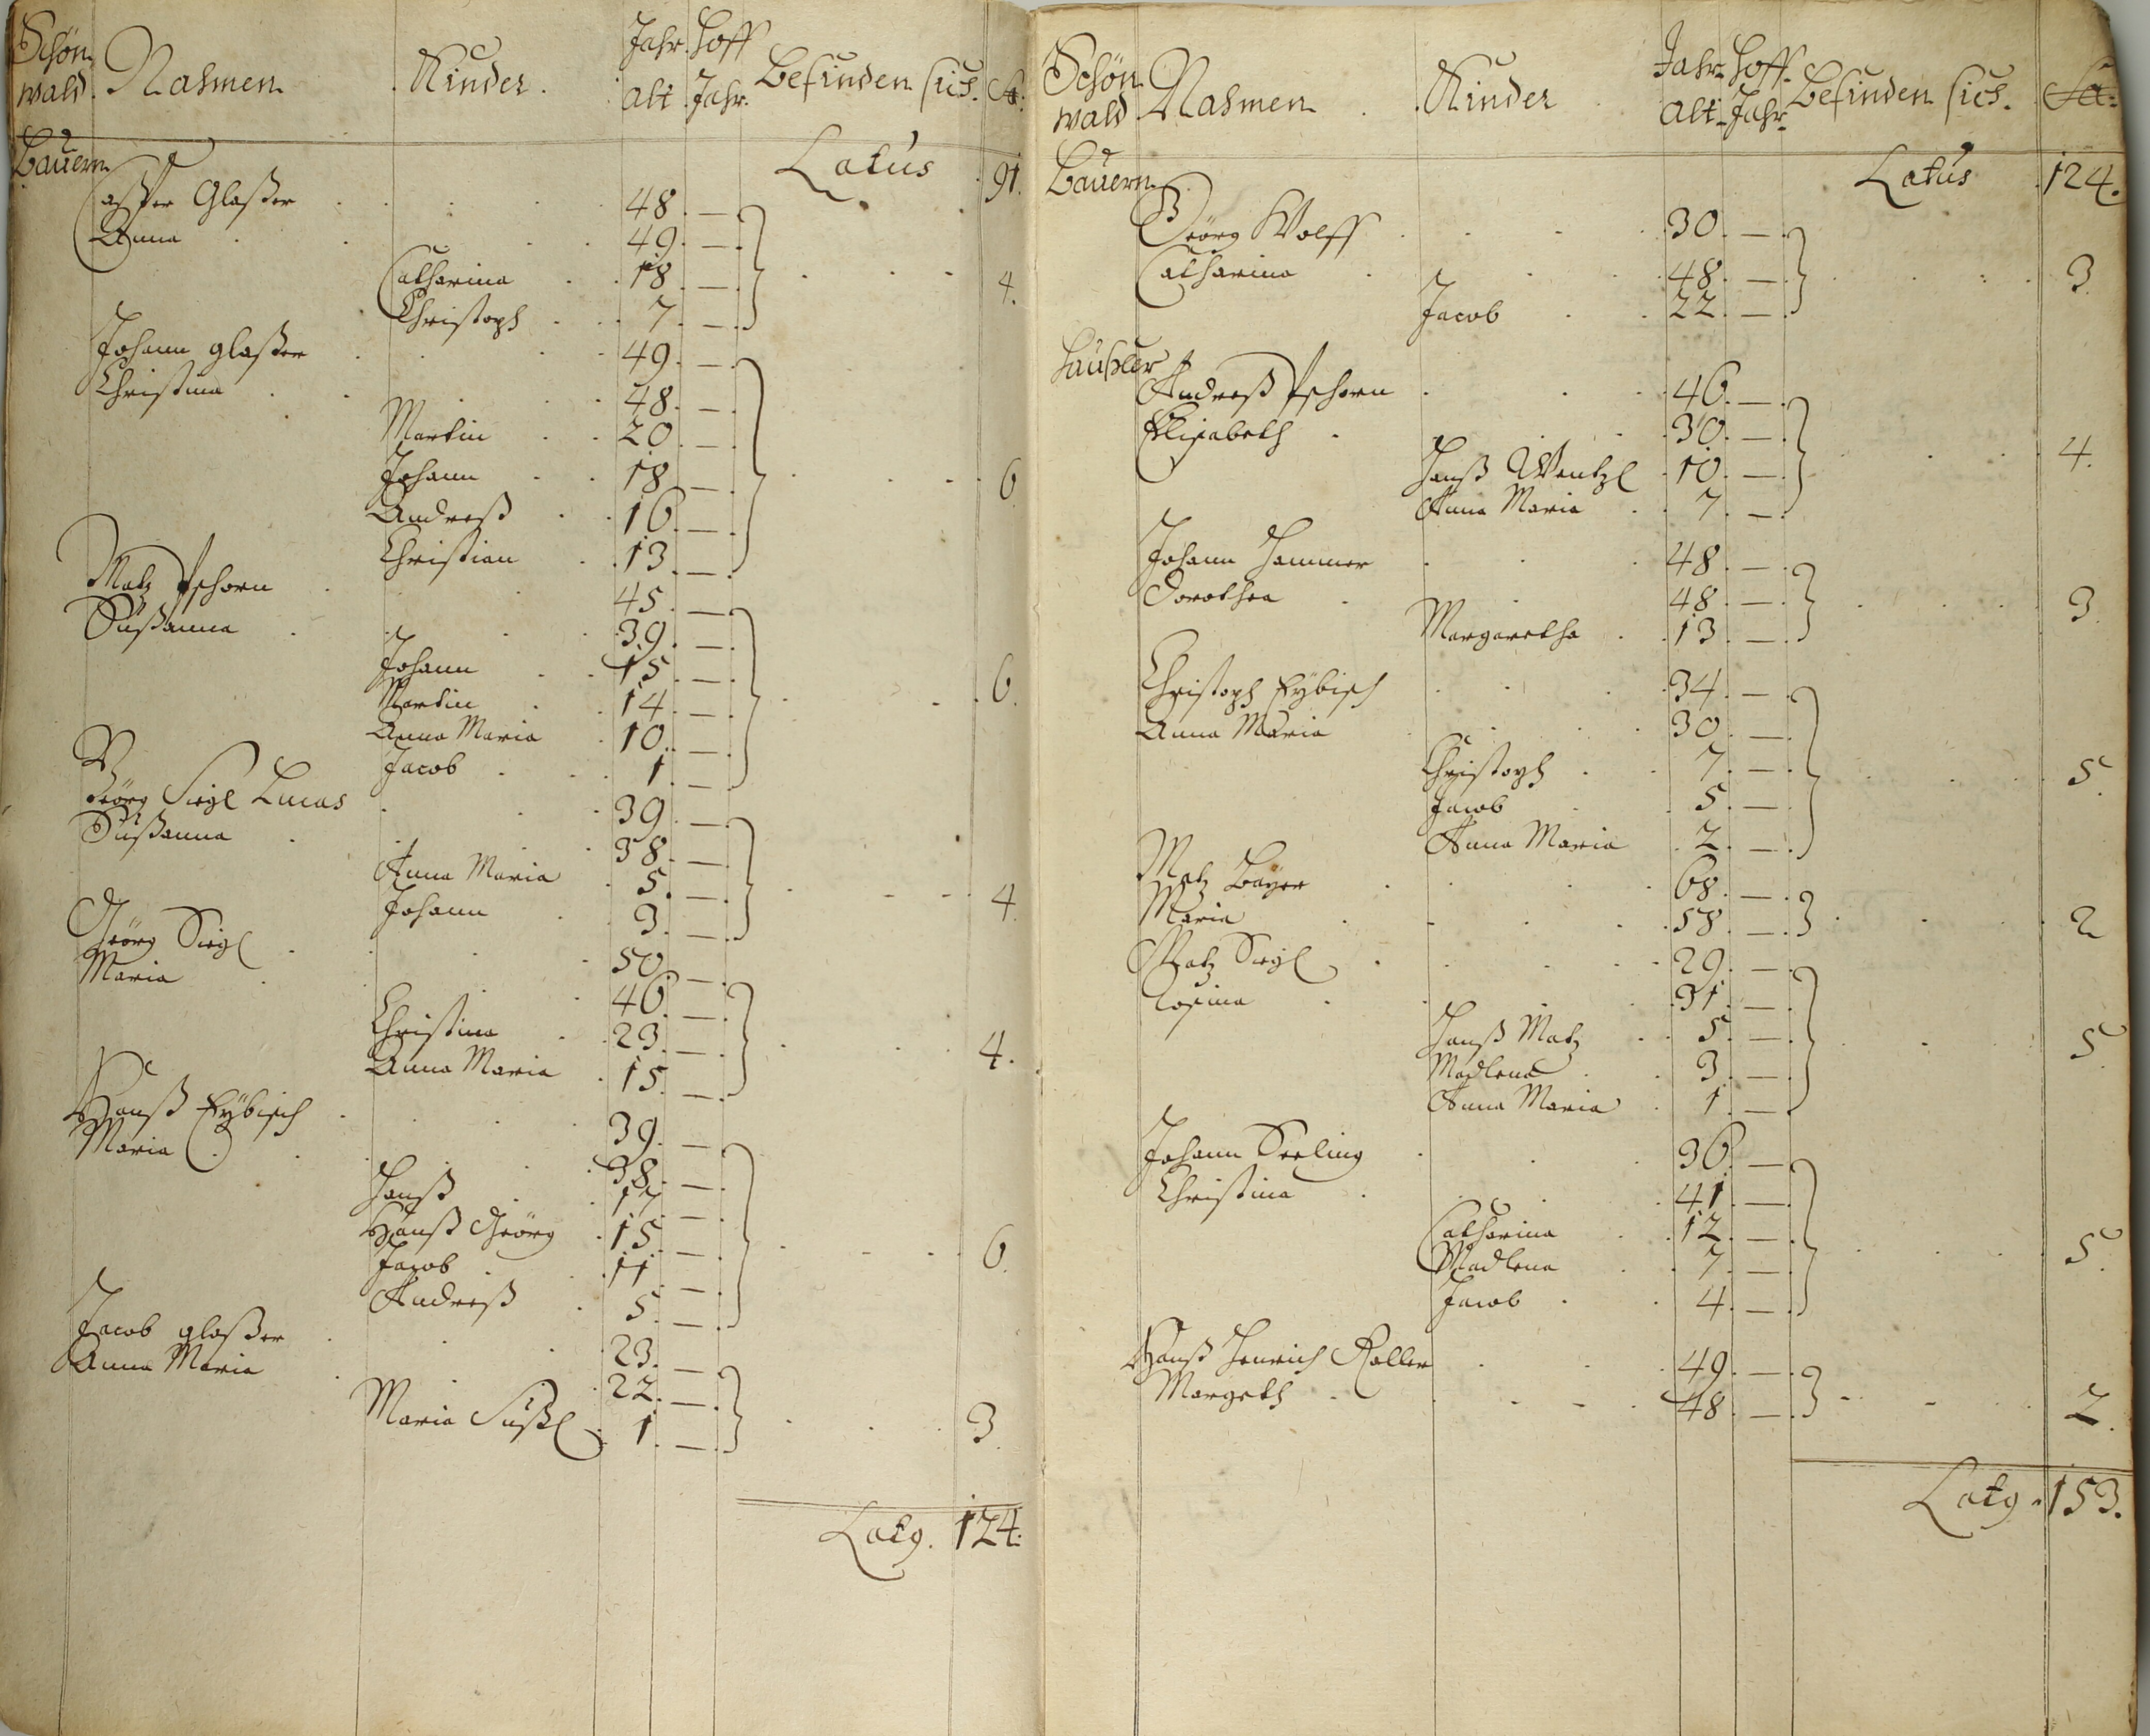 Schön
wald. Nahmen Kinder. Jahr. Hoff
Alt Jahr. Befinden sich. Sa.
Bauern Latus 91.
Casper Glaßer 48. —
Anna 49. —
Catharina 18. — 4.
Christoph 7. —
Johann Glaßer 49. —
Christina 48. —
Martin 20. —
Johann 18. — 6
Andreß 16. —
Christian 13. —
Matz Pschorn 45. —
Sußanna 39. —
Johann 15. —
Martin 14. — 6.
Anna Maria 10. —
Jacob 1. —
Geörg Siegl Lucas 39. —
Sußanna 38. —
Anna Maria 5. — 4.
Johann 3. —
Geörg Siegl 50. —
Maria 46. —
Christina 23. — 4.
Anna Maria 15. —
Hanß Eÿbisch 39. —
Maria 38. —
Hanß 17. —
Hanß Geörg 15. — 6.
Jacob 11. —
Andreß 5. —
Jacob Glaßer 23. —
Anna Maria 22. — 3.
Maria Sußl 1. —
Latg. 124.
Schön
wald Nahmen Kinder Jahr. Hoff.
Alt. Jahr. Befinden sich. Sa.
Bauern Latus 124.
Geörg Wolff 30. —
Catharina 48. — 3
Jacob 22. —
Häußler
Andreß Pschorn 46. —
Elisabeth 30. —
Hanß Wentzl 10. — 4.
Anna Maria 7. —
Johann Hammer 48. —
Dorothea 48. — 3.
Margaretha 13. —
Christoph Eÿbisch 34. —
Anna Maria 30. —
Christoph 7. — 5.
Jacob 5. —
Anna Maria 2. —
Matz Baÿer 68. —
Maria 58. — 2
Matz Siegl 29. —
Rosina 31. —
Hanß Matz 5. — 5.
Madlena 3. —
Anna Maria 1. —
Johann Seeling 36. —
Christina 41. —
Catharina 12. —
Madlena 7. — 5.
Jacob 4. —
Hanß Henrich Roller 49. —
Margeth 48. — 2.
Latg. 153.